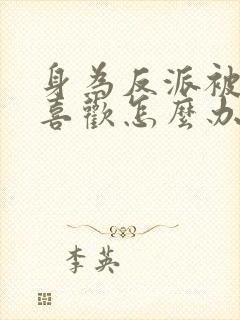 身為反派被
喜歡怎麼办
李英